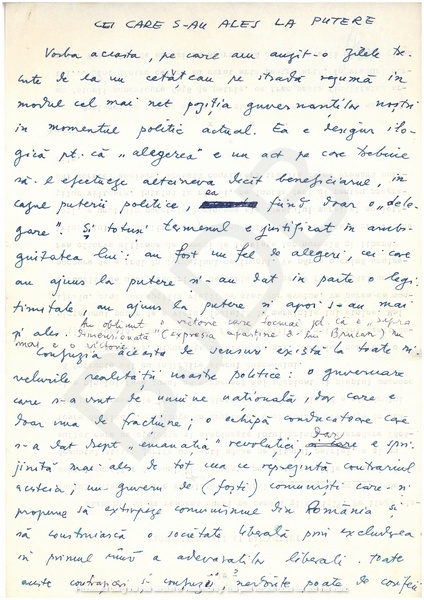 CEI CARE S-AU ALES LA PUTERE
Vorba aceasta, pe care am auzit-o zilele tre-
cute de la un cetăţean pe stradă rezumă în
modul cel mai net poziţia guvernanţilor noştri
în momentul politic actual. Ea e desigur ilo-
gică pt. că „alegerea" e un act pe care trebuie
să-l efectueze altcineva decît beneficiarul, în
cazul puterii politice, ea fiind doar o „dele-
gare". Şi totuşi termenul e justificat în ambi-
guitatea lui: au fost un fel de alegeri, cei care
au ajuns la putere si-au dat în parte o legi-
timitate, au ajuns la putere si apoi s-au mai
şi ales. Au obţinut o victorie care tocmai pt. că e „supra
dimensionată" (expresia aparţine d-lui Brucan) nu
mai e o victorie.
Confuzia aceasta de sensuri există la toate ni-
velurile realităţii noastre politice: o guvernare
care s-a vrut de uniune naţională, dar care e
doar una de fracţiune; o echipă conducătoare care
s-a dat drept „emanatia" revoluţiei, dar e spri-
jinită mai ales de tot ceea ce reprezintă contrariul
acesteia; un guvern de (foşti) comunişti care-si
propune să extirpeze comunismul din România şi
să construiască o societate liberală prin excluderea
in primul rînd a adevaratilor liberali. Toate
aceste contraziceri si confuzii nerodite poate de